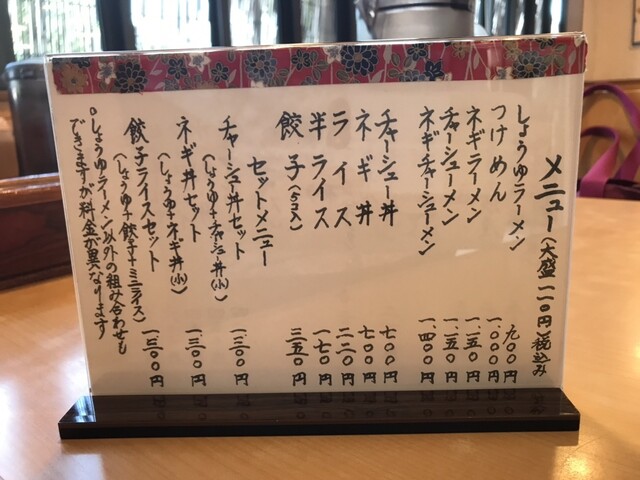 メニュー(大盛一一〇円)税込み
しょうゆラーメン 九〇〇円
つけめん 一、〇〇〇円
ネギラーメン 一、一五〇円
チャーシューメン 一、一五〇円
ネギチャーシューメン 一、四〇〇円
チャーシュー丼 七〇〇円
ネギ丼 七〇〇円
ライス 二二〇円
半ライス 一七〇円
餃子(5コ入) 三五〇円
セットメニュー
チャーシュー丼セット 一、三〇〇円
(しょうゆ+チャーシュー丼(小))
ネギ丼セット 一、三〇〇円
(しょうゆ+ネギ丼(小))
餃子ライスセット 一、三〇〇円
(しょうゆ+餃子+ミニライス)
。しょうゆラーメン以外の組み合わせも
できますが料金が異なります